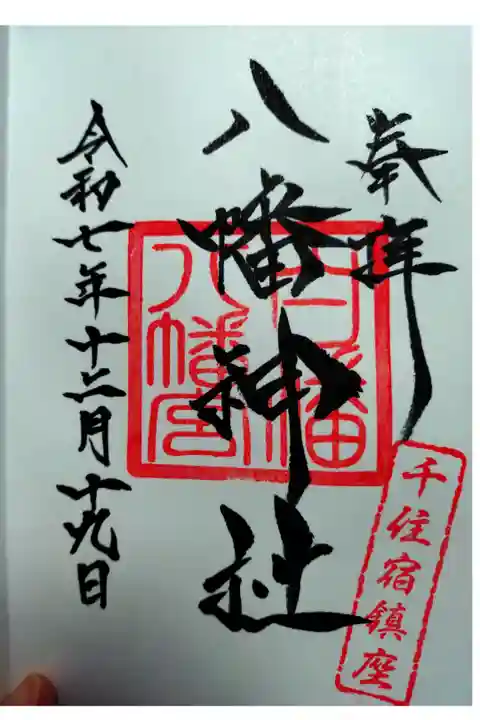 奉拝
八幡神社
令和七年十二月十九日
八幡宮
千住宿鎮座